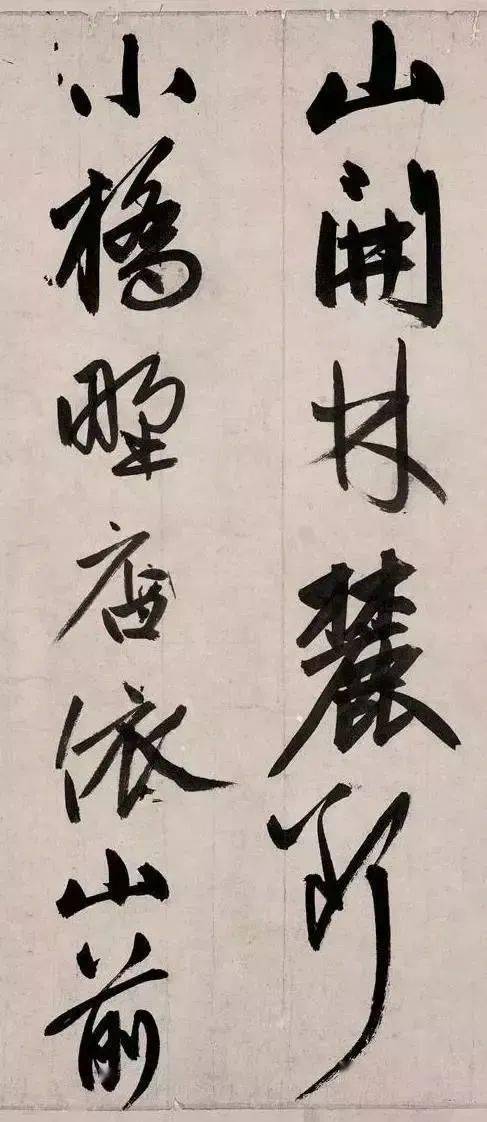 山開林麓断
小橋野店依山前